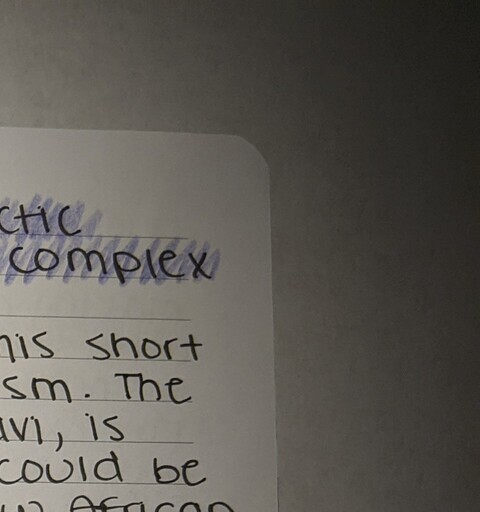 ctic
complex
his short
sm. The
avi, is
could be
African